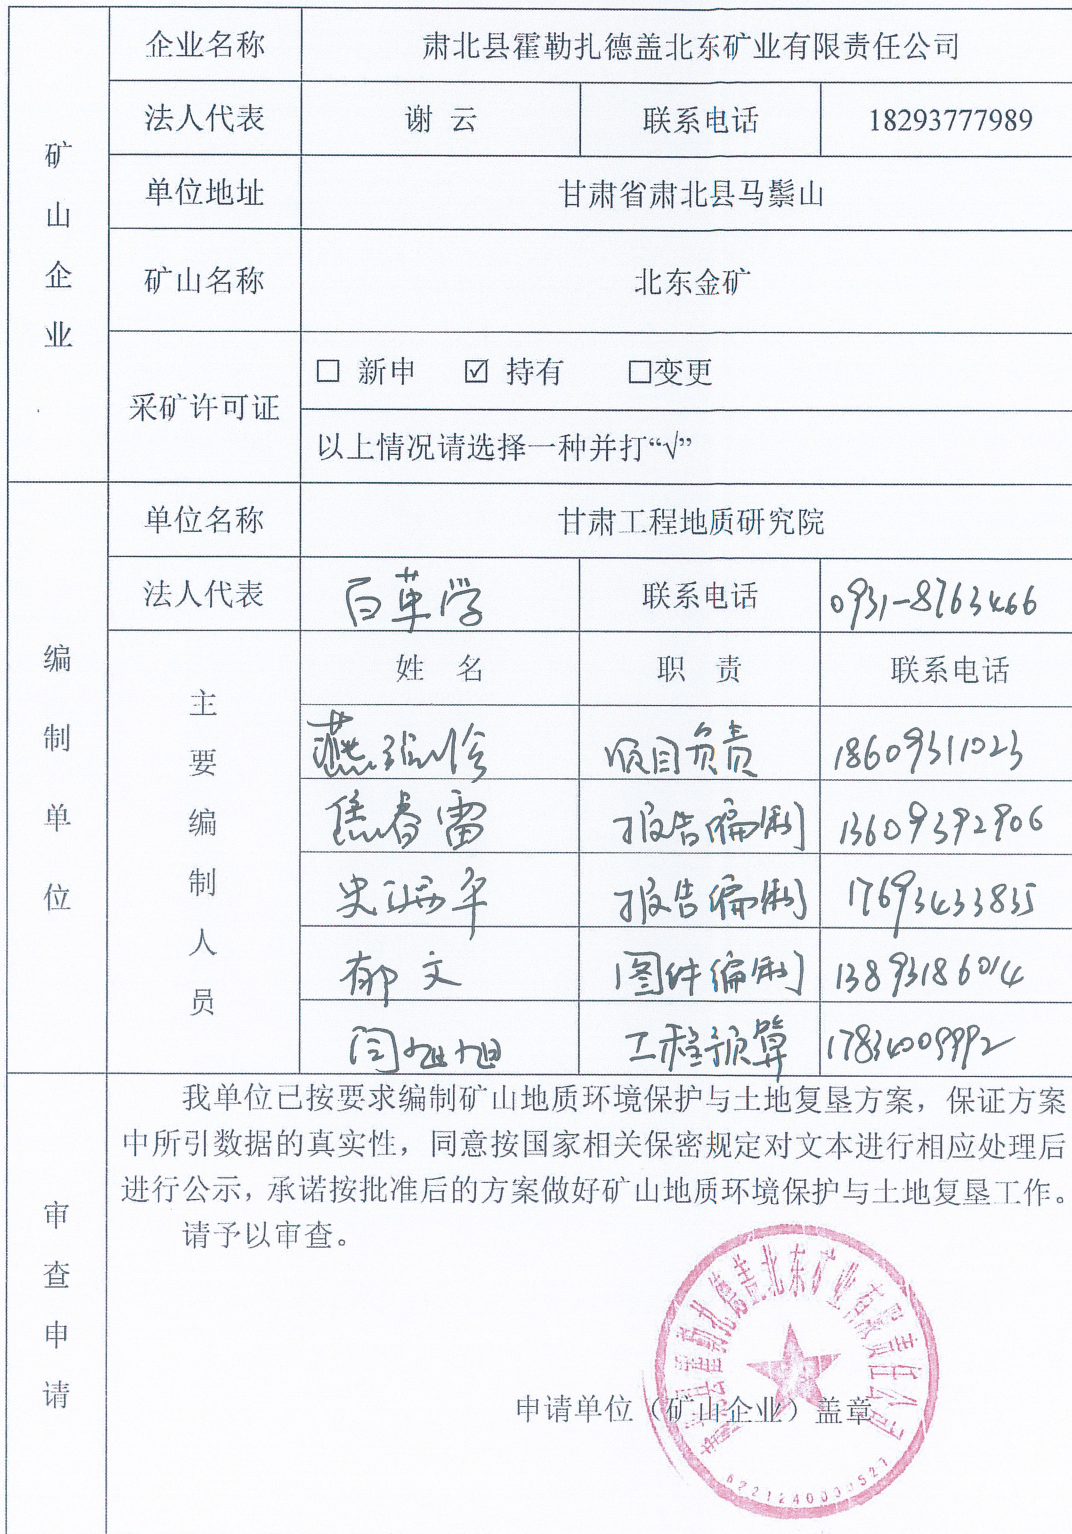 矿山企业
企业名称 肃北县霍勒扎德盖北东矿业有限责任公司
法人代表 谢 云 联系电话 18293777989
单位地址 甘肃省肃北县马鬃山
矿山名称 北东金矿
采矿许可证
□ 新申 ☑ 持有 □变更
以上情况请选择一种并打“√”
编制单位
单位名称 甘肃工程地质研究院
法人代表 百革学 联系电话 0931-8763466
主要编制人员
姓 名 职 责 联系电话
燕 项目负责 18609311023
焦春雷 报告编制 13609392906
史 平 报告编制 17693433835
郁文 图件编制 13893186014
闫旭旭 工程预算
审查申请
我单位已按要求编制矿山地质环境保护与土地复垦方案，保证方案
中所引数据的真实性，同意按国家相关保密规定对文本进行相应处理后
进行公示，承诺按批准后的方案做好矿山地质环境保护与土地复垦工作。
请予以审查。
肃北县霍勒扎德盖北东矿业有限责任公司
申请单位（矿山企业）盖章